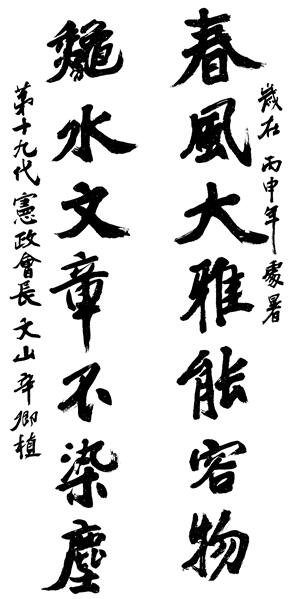 歲在丙申年處暑
春風大雅能容物
龝水文章不染塵
第十九代憲政會長 文山 辛卿植